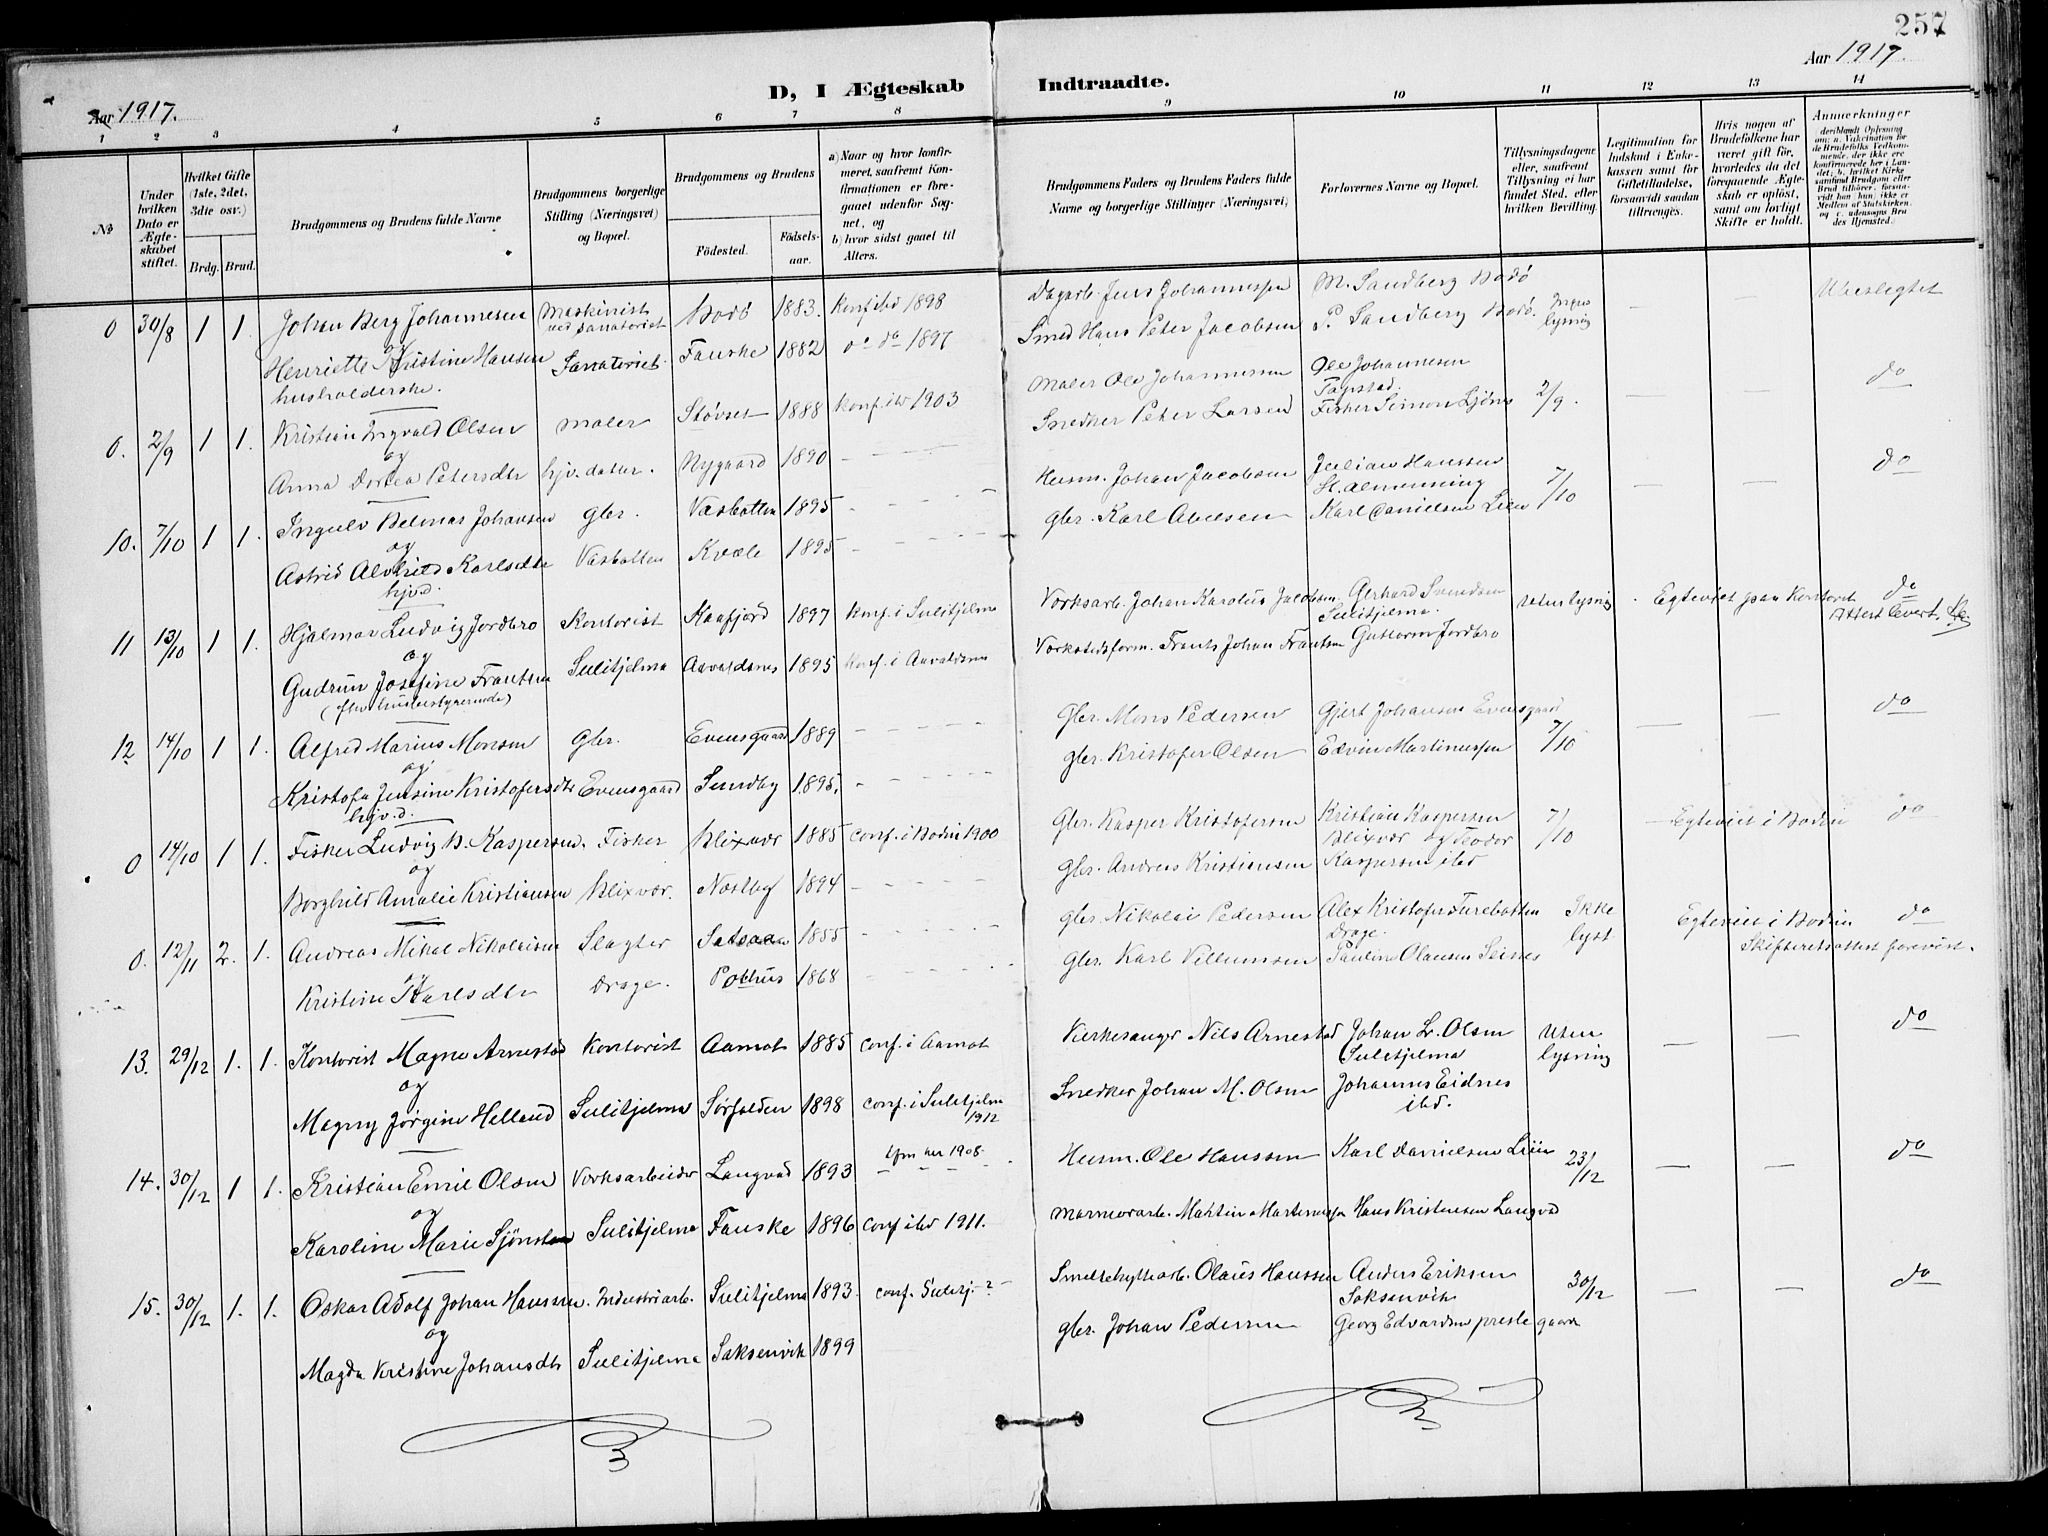 257
Aar 1917.
D, I Ægteskab Indtraadte.
Aar 1917.
1 2 3 4 5 6 7 8 9 10 11 12 13 14
No
Under hvilken Dato er Ægteskabet stiftet.
Hvilket Gifte (1ste, 2det, 3dte osv.)
Brdg. Brud.
Brudgommens og Brudens fulde Navne
Brudgommens borgerlige Stilling (Næringsvei) og Bopæl.
Brudgommens og Brudens
Födested. Födsels-aar.
a) Naar og hvor konfirmeret, saafremt Konfirmationen er foregaaet udenfor Sognet, og
b) hvor sidst gaaet til Alters.
Brudgommens Faders og Brudens Faders fulde Navne og borgerlige Stillinger (Næringsvei)
Forlovernes Navne og Bopæl.
Tillysningsdagene eller, saafremt Tillysning ei har fundet Sted, efter hvilken Bevilling.
Legitimation for Indskud i Enkekassen samt for Giftetilladelse, forsaavidt saadan tiltrænges.
Hvis nogen af Brudefolkene har været gift för, hvorledes da det foregaaende Ægteskab er oplöst, samt om lovligt Skifte er holdt.
Anmerkninger
0 30/8 1 1. Johan Berg Johannesen Maskinist ved Sanatoriet Bodö 1883. Konf ibd 1898 Dagarb. Jens Johannessen M. Sandberg Bodö Ubeslegtet
og
Henriette Kristine Hansen Sanatoriet Fauske 1882 do do 1897 Smed Hans Peter Jacobsen P. Sandberg Bodö. Ingen lysning
husholderske.
0. 2/9 1 1. Kristian Ingvald Olsen maler Stövset 1888 Konf. ibd 1903 Maler Ole Johannessen Ole Johannesen 2/9. do
og
Anna Dortea Petersdtr hjv. datter. Nygaard 1890 Snedker Peter Larsen Fisker Simon
10. 7/10 1 1. Ingulv Johansen gbr. Vasbotten 1895 Husm. Johan Jacobsen Julian Hanssen 7/10 do
og
Astrid Karlsdtr Vasbotten Kvæle 1895 gbr. Karl Abelsen Karl Danielsen Lien
hjvd.
11 13/10 1 1. Hjalmar Ludvig Jordbro Kontorist Kaafjord 1897 Konf. i Sulitjelma Verksarb. Johan Karolus Jacobsen. Gerhard Svendsen Sulitjelma. uten lysning Egteviet paa Kontoret do
og
Gudrun Josefine Frantsen Sulitjelma Aavaldsnes 1895 Konf. i Aavaldsnes Verkstedsform. Frants Johan Frantsen Guttorm Jordbro
12 14/10 1 1. Alfred Marius Monsen Gbr. Evensgaard 1889 Gbr. Mons Pedersen Gjert Johansen Evensgaard 7/10 do
og
Kristofa Jensine Kristofersdtr Evensgaard Sundby 1895. gbr. Kristofer Olsen Edvin Martinussen
hjv.d.
0 14/10 1 1. Fisker Ludvig B. Kaspersen. Fisker Blixvær 1885 Conf. i Bodin 1900 Gbr. Kasper Kristofersen Kristian Kaspersen 7/10 Egteviet i Bodin do
og
Borghild Amalie Kristiansen Blixvær. Nestby 1894 gbr. Andreas Kristiansen Blixvær og Teodor Kaspersen ibd
0. 12/11 2. 1. Andreas Mikal Nikolaisen Slagter 1855 gbr. Nikolai Pedersen Alex Kristofers Furebotten Drage. Ikke lyst. Egteviet i Bodin do
og
Kristine Karlsdtr Drage. Pothus 1868 gbr. Karl Villumsen Pauline Olausen Leines Skifteretsattest forevist.
13. 29/12 1. 1. Kontorist Magne Arnestad Kontorist Aamot 1885 Conf. i Aamot Kirkesanger Nils Arnestad Johan L. Olsen Sulitjelma Uten lysning do
og
Magny Jörgine Helland Sulitjelma Sörfolden 1898 Conf. i Sulitjelma 1912 Snedker Johan M. Olsen Johannes Eidnes ibd.
14. 30/12 1 1. Kristian Emil Olsen Verksarbeider Langvad 1893 1908 Husm. Ole Hanssen Karl Danielsen Lien 23/12 do
og
Karoline Marie Sjönstaa Sulitjelma Fauske 1896 Conf ibd 1911. Marmorarb. Martin Martinussen Hans Kristensen Langvad
15. 30/12 1. 1. Oskar Adolf Johan Hanssen. Industriarb. Sulitjelma 1893. conf. Sulitj. ? Smeltehyttearb. Olaus Hanssen Anders Eriksen Saksenvik 30/12 do
og
Magda Kristine Johansdtr Sulitjelma Saksenvik 1899 gbr. Johan Pedersen Georg Edvardsen prestegaard